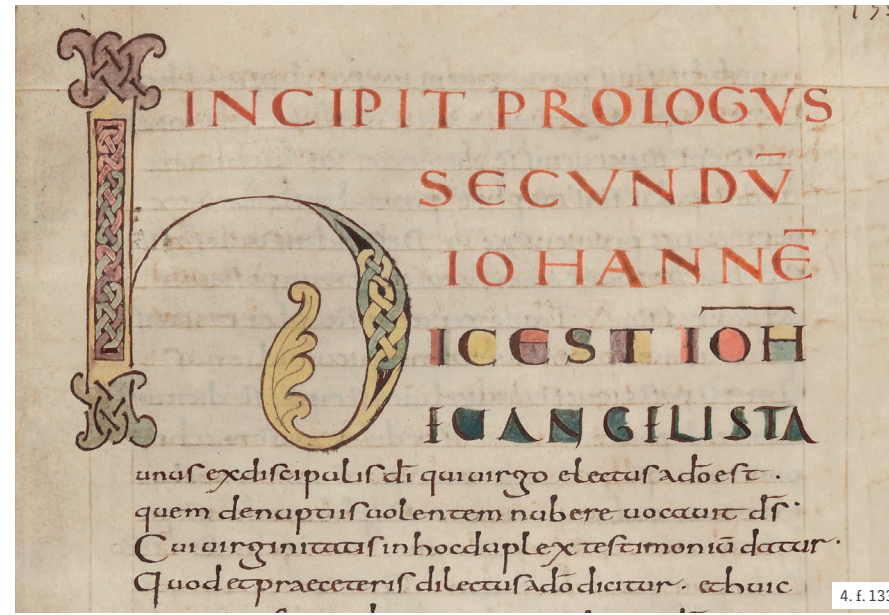 INCIPIT PROLOGVS
SECVNDV̄
IOHANNĒ
hIC EST IOH̄
EUANGELISTA
unus ex discipulis dī qui uirgo electus a dō est ·
quem de nuptiis uolentem nubere uocauit dī ·
Cui uirginitatis in hoc duplex testimoniū datur ·
Quod et prae ceteris dilectus a dō dicitur · et huic
4. f. 133